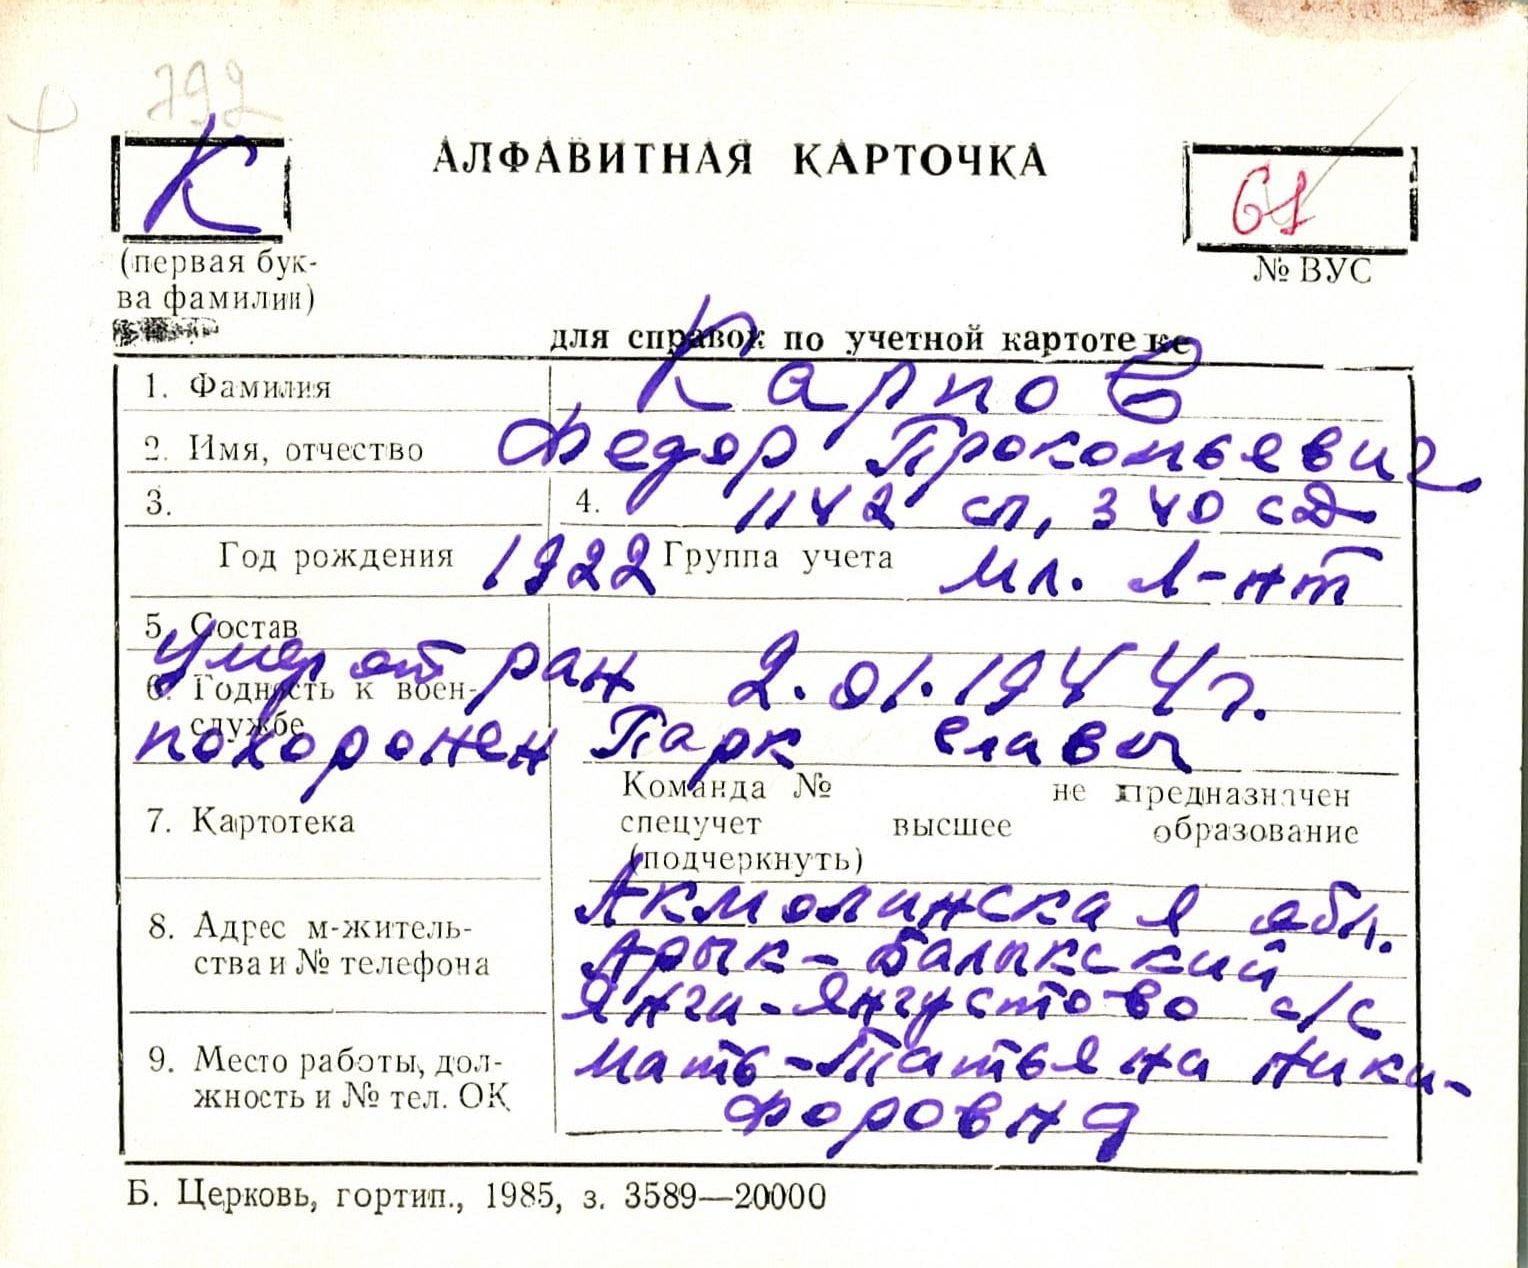 792
К
АЛФАВИТНАЯ КАРТОЧКА
61
(первая бук-
ва фамилии)
№ ВУС
для справок по учетной картотеке
1. Фамилия Карпов
2. Имя, отчество Федор Прокопьевич
3. 4. 1142 сп, 340 сд
Год рождения 1922 Группа учета мл. л-нт
5. Состав
умер от ран 2.01.1944г.
6. Годность к воен-
службе
похоронен Парк Славы
Команда № не предназначен
7. Картотека спецучет высшее образование
(подчеркнуть)
Акмолинская обл.
8. Адрес м-житель-
Арык-Балыкский
ства и № телефона
Янги-Янгустово с/с
9. Место работы, дол-
Мать-Татьяна Ники-
жность и № тел. ОК
форовна
Б. Церковь, гортип., 1985, з. 3589—20000